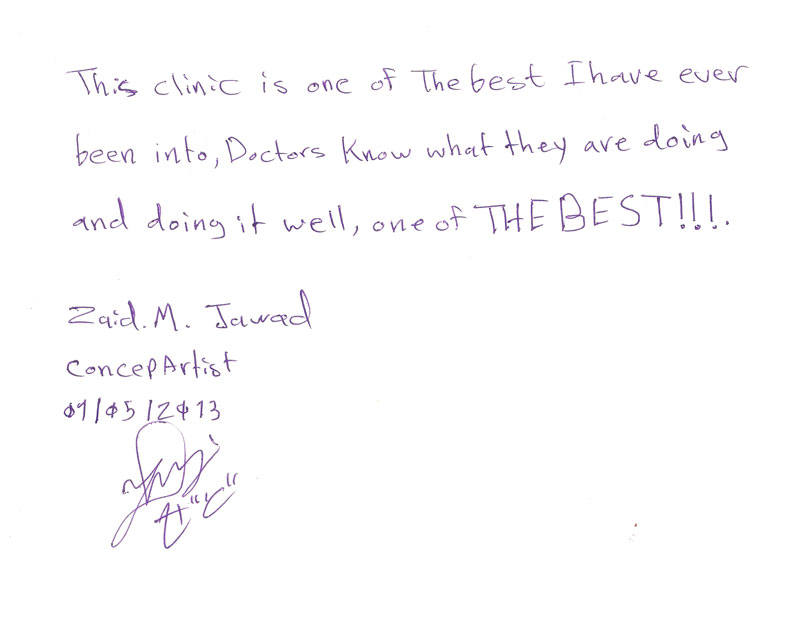 This clinic is one of The best I have ever
been into, Doctors Know what they are doing
and doing it well, one of THE BEST!!!.
Zaid. M. Jawad
ConcepArtist
01/05/2013